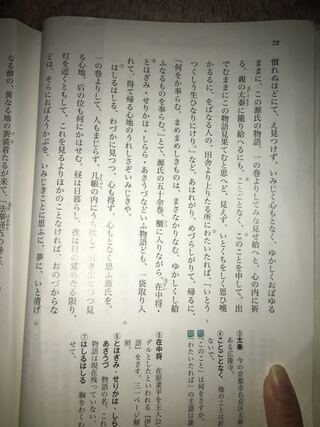 72
慣れぬほどにて、え見つけず。いみじく心もとなく、ゆかしくおぼゆる
ままに、「この源氏の物語、一の巻よりしてみな見せ給へ」と、心の内に祈
る。親の太秦に籠り給へるにも、ことごとなく、このことを申して、出
でむままにこの物語見果てむと思へど、見えず。いとくちをしく思ひ嘆
かるるに、をばなる人の、田舎より上りたる所にわたいたれば、「いとう
つくしう生ひなりにけり」など、あはれがり、めづらしがりて、帰るに、
「何をか奉らむ。まめまめしきものは、まさなかりなむ。ゆかしくし給
ふなるものを奉らむ」とて、源氏の五十余巻、櫃に入りながら、在中将・
とほぎみ・せりかは・しらら・あさうづなどいふ物語ども、一袋取り入
れて、得て帰る心地のうれしさぞいみじきや。
はしるはしる、わづかに見つつ、心も得ず、心もとなく思ふ源氏を、
一の巻よりして、人もまじらず、几帳の内にうち伏して、引き出でつつ見
る心地、后の位も何にかはせむ。昼は日暮らし、夜は目の覚めたる限り、
灯を近くともして、これを見るよりほかのことなければ、おのづからな
どは、そらにおぼえうかぶを、いみじきことに思ふに、夢に、いと清げ
なる僧の、黄なる地の袈裟着たるが来て、
③太秦 今の京都市右京区太秦
ある広隆寺。
④ことごとなく 他のことは祈
ないで。
「このこと」は何をさすか。
「わたいたれば」の主語は誰
⑤在中将 在原業平を主人公
デルとしたといわれる『伊
語』をさす。
⑥とほぎみ・せりかは・しら
あさうづ 物語の名。これ
物語は現在残っていない。
⑦はしるはしる 胸をわくわ
せて。